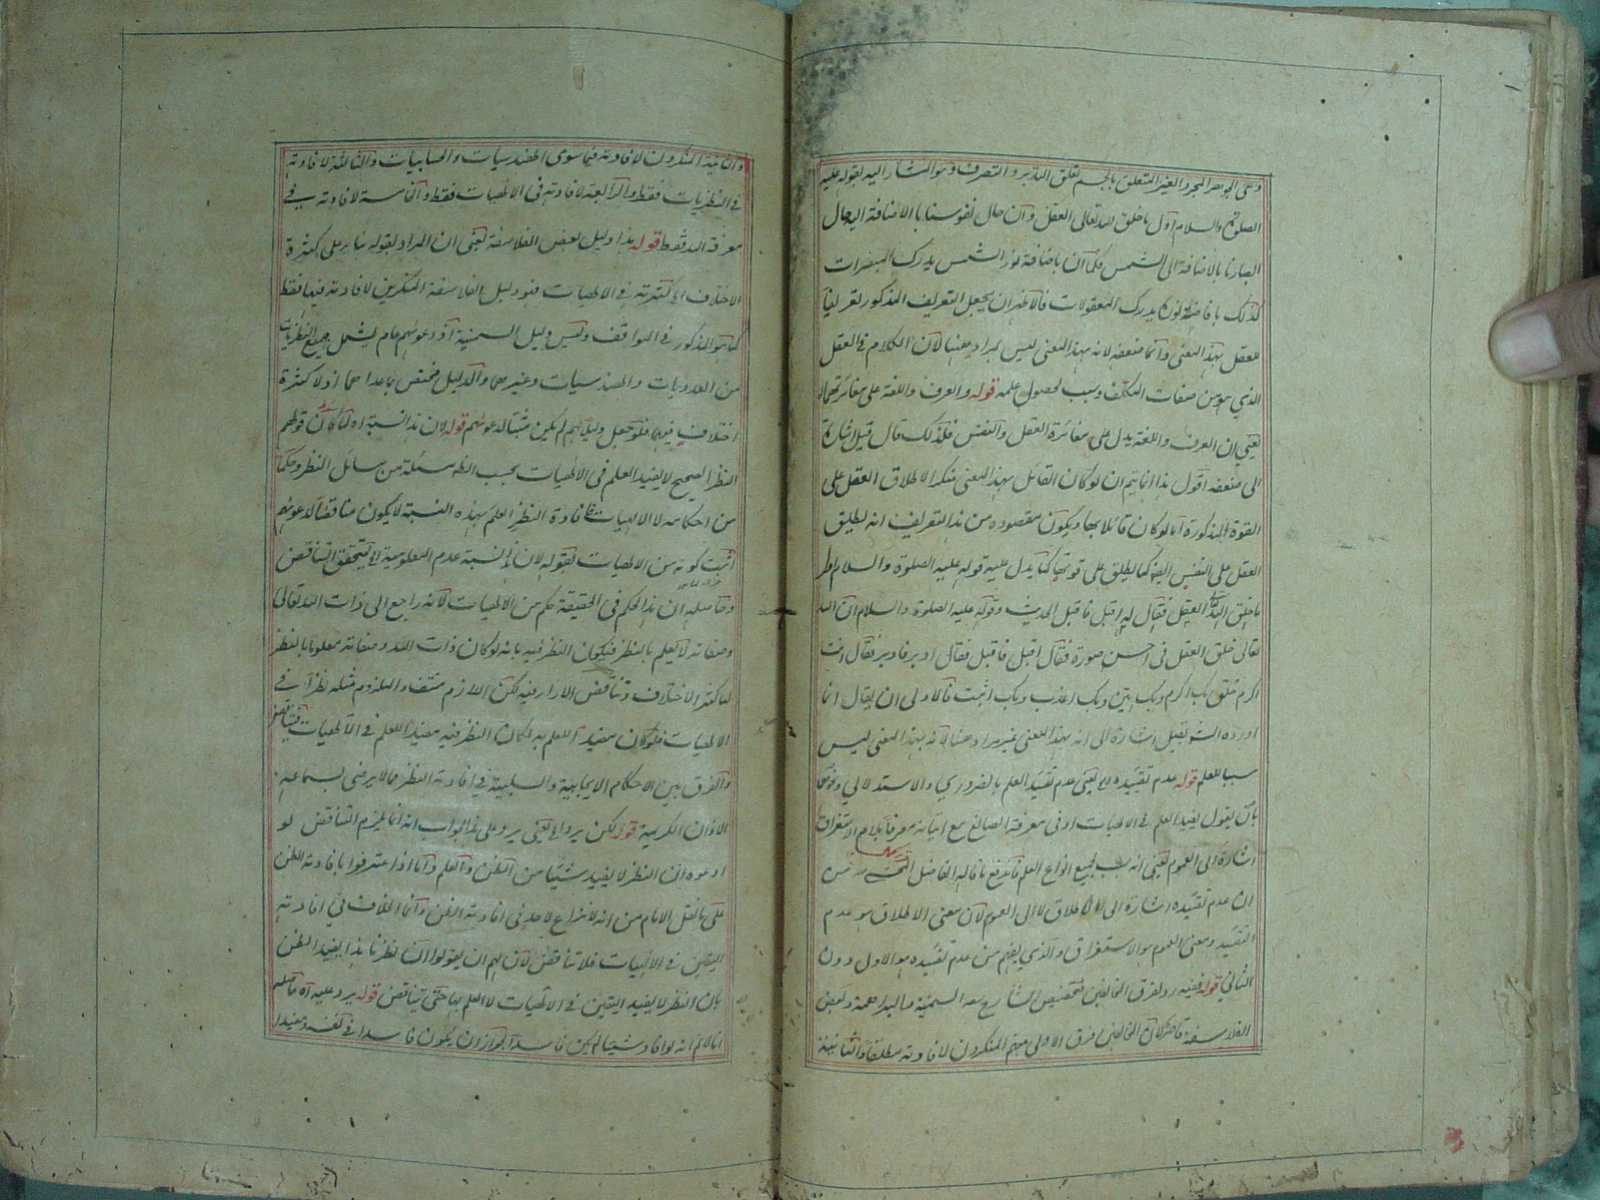 وهى الجوهر المجرد الغير المتعلق بالجسم تعلق التدبير والتصرف وهو المشار اليه بقوله عليه
الصلوة والسلام اول ما خلق الله تعالى العقل وان حال نفوسنا بالاضافة اليه حال
ابصارنا بالاضافة الى الشمس فكما ان باضافة نور الشمس يدرك المبصرات
كذلك بافاضة نوره يدرك المعقولات فالاظهر ان يجعل التعريف المذكور تعريفا
للعقل بهذا المعنى وانما ضعفه لانه بهذا المعنى ليس بمراد ههنا لان الكلام فى العقل
الذي هو من صفات المكلف وسبب لحصول علمه قوله والعرف واللغة على مغائرتهما
يعني ان العرف واللغة يدل على مغائرة العقل والنفس فلذلك قال قيل اشارة
الى ضعفه اقول هذا انما يتم ان لو كان القائل بهذا المعنى منكرا لاطلاق العقل على
القوة المذكورة اما لو كان قائلا بها ويكون مقصوده من هذا التعريف انه يطلق
العقل على النفس ايضا كما يطلق على قوتها كما يدل عليه قوله عليه الصلوة والسلام اول
ما خلق الله العقل فقال له اقبل فاقبل الحديث وقوله عليه الصلوة والسلام ان الله
تعالى خلق العقل فى احسن صورة فقال اقبل فاقبل فقال ادبر فادبر فقال انت
اكرم خلق بك اكرم وبك اهين وبك اعذب وبك اثبت فالاولى ان يقال انما
اورده الش بقيل اشارة الى انه بهذا المعنى غير مراد ههنا لانه بهذا المعنى ليس
سببا للعلم قوله عدم تقييده اى يعنى عدم تقييد العلم بالضروري والاستدلالي
بان يقول يفيد العلم فى الالهيات او فى معرفة الصانع مع اتيانه معرفا بلام الاستغراق
اشارة الى العموم يعنى انه سبب لجميع انواع العلم فاندفع ما قاله الفاضل المحشى من
ان عدم تقييده اشارة الى الاطلاق لا الى العموم لان معنى الاطلاق هو عدم
التقييد ومعنى العموم هو الاستغراق والذي يفهم من عدم تقييده هو الاول دون
الثاني قوله ففيه رد لفرق المخالفين فتخصيص الشارح السمنية وبعض
الفلاسفة لان المخالفين فرق الاولى منهم المنكرون لافادته مطلقا والثانية
والثانية المنكرون لافادته فيما سوى الهندسيات والحسابيات والثالثة لافادته
فى النظريات فقط والرابعة لافادته فى الالهيات فقط والخامسة لافادته فى
معرفة الله فقط قوله هذا دليل بعض الفلاسفة يعنى ان المراد بقوله بناء على كثرة
الاختلاف اى كثرته فى الالهيات فهو دليل الفلاسفة المنكرين لافادته فيها فقط
كما هو المذكور فى المواقف وليس دليل السمنية اذ دعواهم عام يشمل جميع النظريات
من العدديات والهندسيات وغيرهما والدليل مختص بما عداهما اذ لا كثرة
اختلاف فيهما فلو جعل دليلا لهم لم يكن مثبتا لدعواهم قوله لان هذا لنسبة اه لما كان قولهم
النظر الصحيح لا يفيد العلم فى الالهيات بحسب الظاهر مسئلة من مسائل النظر وحكما
من احكامه لا الالهيات فافادة النظر العلم بهذه النسبة لا يكون مناقضا لدعواهم
اثبت كونه من الالهيات بقوله لان نسبة عدم المعلومية اى يتحقق التناقض
وحاصله ان هذا الحكم فى الحقيقة حكم من الالهيات لانه راجع الى ذات الله تعالى
وصفاته لا يعلم بالنظر فيكون النظر فيه بانه لو كان ذات الله وصفاته معلوما بالنظر
لما كثر الاختلاف وتناقض الاراء فيه لكن اللازم منتف والملزوم مثله نظرا فى
الالهيات فلو كان مفيدا للعلم به لكان النظر فيه مفيدا للعلم فى الالهيات فيتناقض
والفرق بين الاحكام الايجابية والسلبية في افادة النظر مما لا يرضى بسماعه
الاذان الكريمة قوله لكن يرد اى يعنى يرد على هذا الجواب انه انما يلزم التناقض لو
ادعوه ان النظر لا يفيد شيئا من الظن والعلم واما اذا اعترفوا بافادته الظن
على ما نقل الامام من انه لا نزاع لاحد فى افادته الظن وانما الخلاف في افادته
اليقين فى الالهيات فلا تناقض لان لهم ان يقولوا ان نظرنا هذا يفيد الظن
بان النظر لا يفيد اليقين فى الالهيات لا العلم بها حتى يتناقض قوله يرد عليه اه حاصله
انا لانم انه لو افاد شيئا لم يكن فاسدا لجواز ان يكون فاسدا فى نفسه ومفيدا